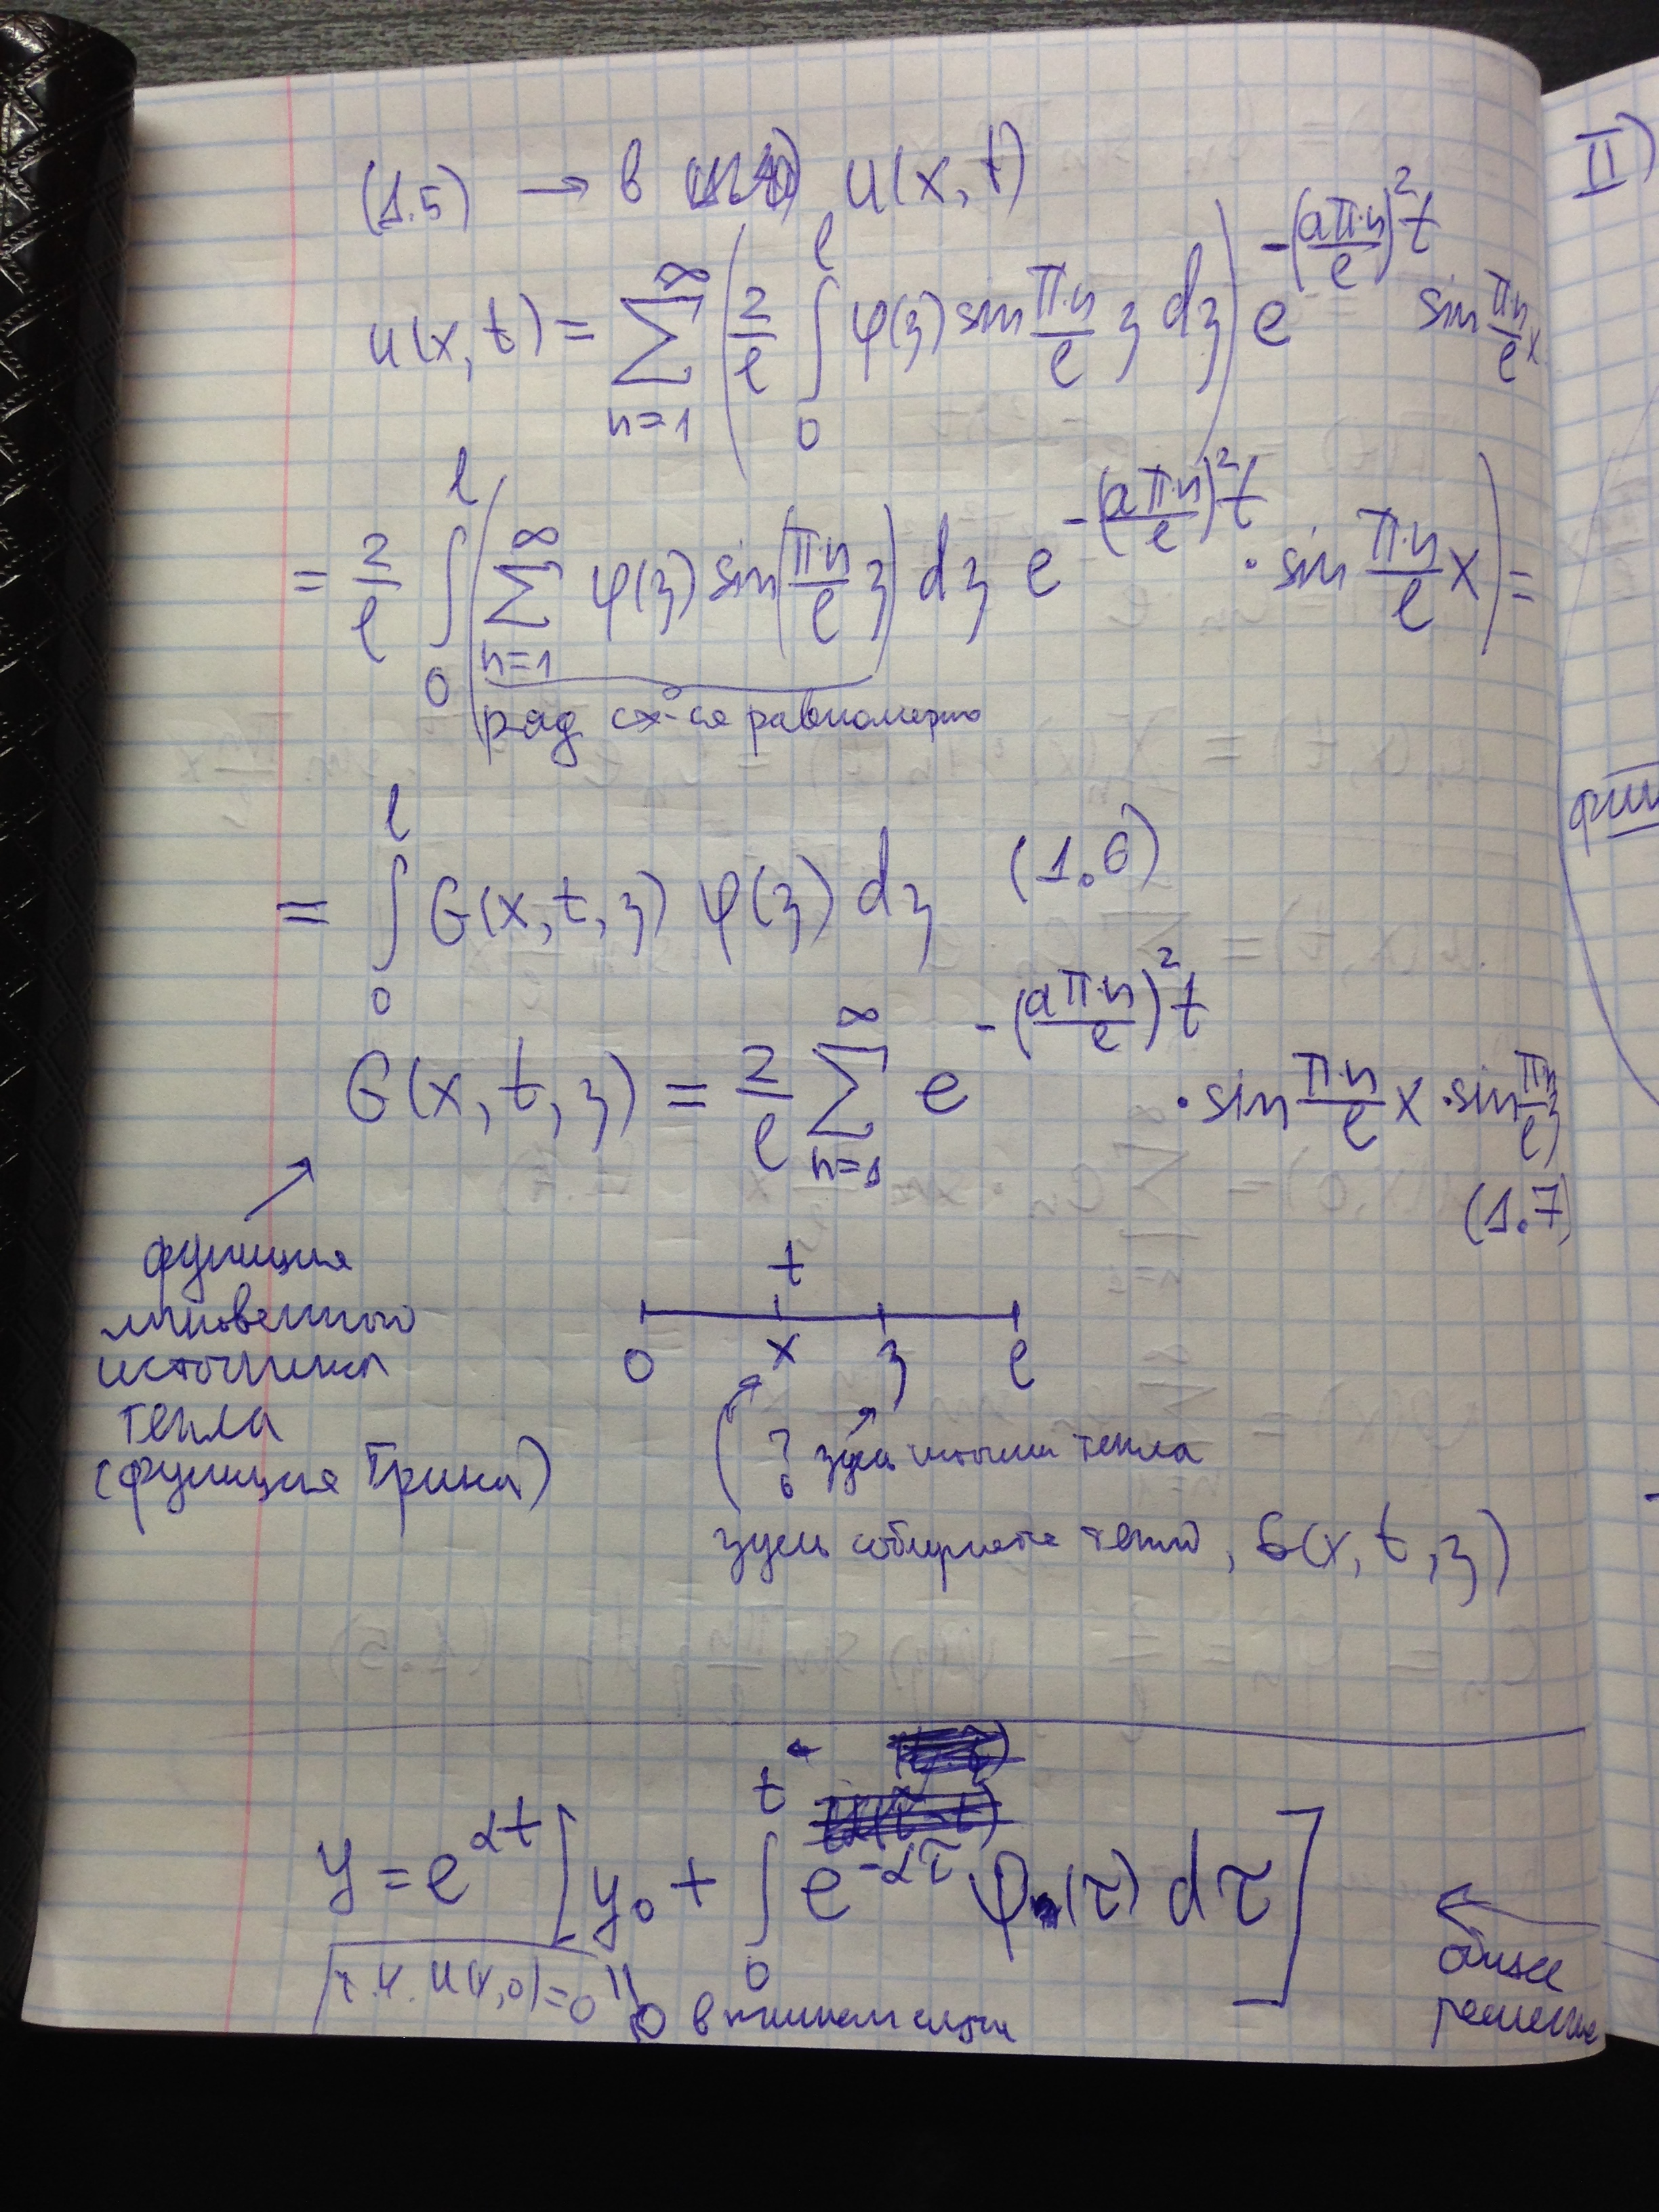 (1.5) → в u(x, t)
u(x, t) = ∑_{n=1}^{∞} ( 2/l ∫_0^l φ(ξ) sin πn/l ξ dξ ) e^{-(aπn/l)² t} sin πn/l x
= 2/l ∫_0^l ( ∑_{n=1}^{∞} φ(ξ) sin(πn/l ξ) dξ e^{-(aπn/l)² t} · sin πn/l x ) =
ряд сх-ся равномерно
= ∫_0^l G(x, t, ξ) φ(ξ) dξ (1.6)
G(x, t, ξ) = 2/l ∑_{n=1}^{∞} e^{-(aπn/l)² t} · sin πn/l x · sin πn/l ξ
(1.7)
функция
мгновенного
источника
тепла
(функция Грина)
t
0 x ξ l
? здесь источн тепла
здесь собирается тепло, G(x, t, ξ)
y = e^{αt} [ y₀ + ∫_0^t e^{-ατ} φ(τ) dτ ]
←
общее
решение
т.ч. u(x,0)=0 || 0 в нашем случае
II)